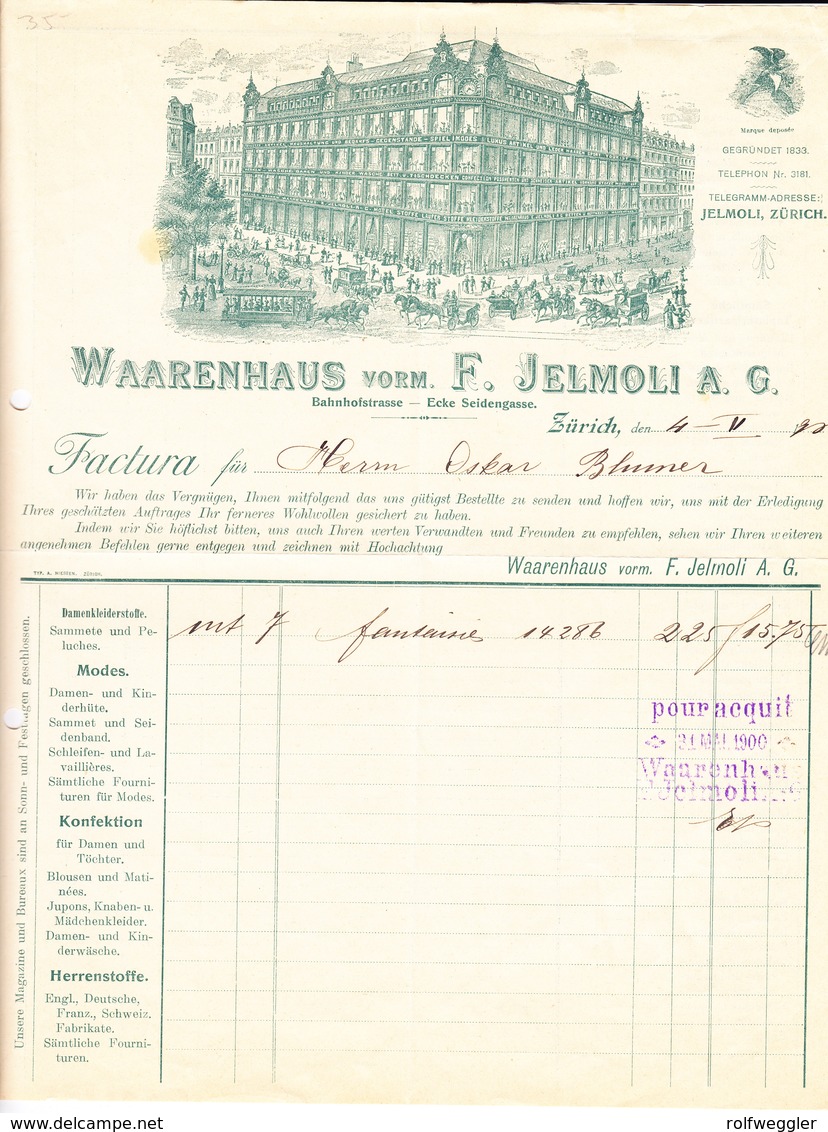 35
Marque deposée
GEGRÜNDET 1833.
TELEPHON Nr. 3181.
TELEGRAMM-ADRESSE:
JELMOLI, ZÜRICH.
WAARENHAUS VORM. F. JELMOLI A. G.
Bahnhofstrasse — Ecke Seidengasse.
Zürich, den 4 – V
Factura für Herrn Oskar Blumer
Wir haben das Vergnügen, Ihnen mitfolgend das uns gütigst Bestellte zu senden und hoffen wir, uns mit der Erledigung
Ihres geschätzten Auftrages Ihr ferneres Wohlwollen gesichert zu haben.
Indem wir Sie höflichst bitten, uns auch Ihren werten Verwandten und Freunden zu empfehlen, sehen wir Ihren weiteren
angenehmen Befehlen gerne entgegen und zeichnen mit Hochachtung
Waarenhaus vorm. F. Jelmoli A. G.
Unsere Magazine und Bureaux sind an Sonn- und Festtagen geschlossen.
Damenkleiderstoffe.
Sammete und Pe-
luches.
mt 7 fantaisie 14286 225 15.75
Modes.
Damen- und Kin-
derhüte.
Sammet und Sei-
denband.
Schleifen- und La-
vaillières.
Sämtliche Fourni-
turen für Modes.
pour acquit
31 MAI 1900
Waarenhaus
Jelmoli
Konfektion
für Damen und
Töchter.
Blousen und Mati-
nées.
Jupons, Knaben- u.
Mädchenkleider.
Damen- und Kin-
derwäsche.
Herrenstoffe.
Engl., Deutsche,
Franz., Schweiz.
Fabrikate.
Sämtliche Fourni-
turen.
www.delcampe.net
rolfweggler